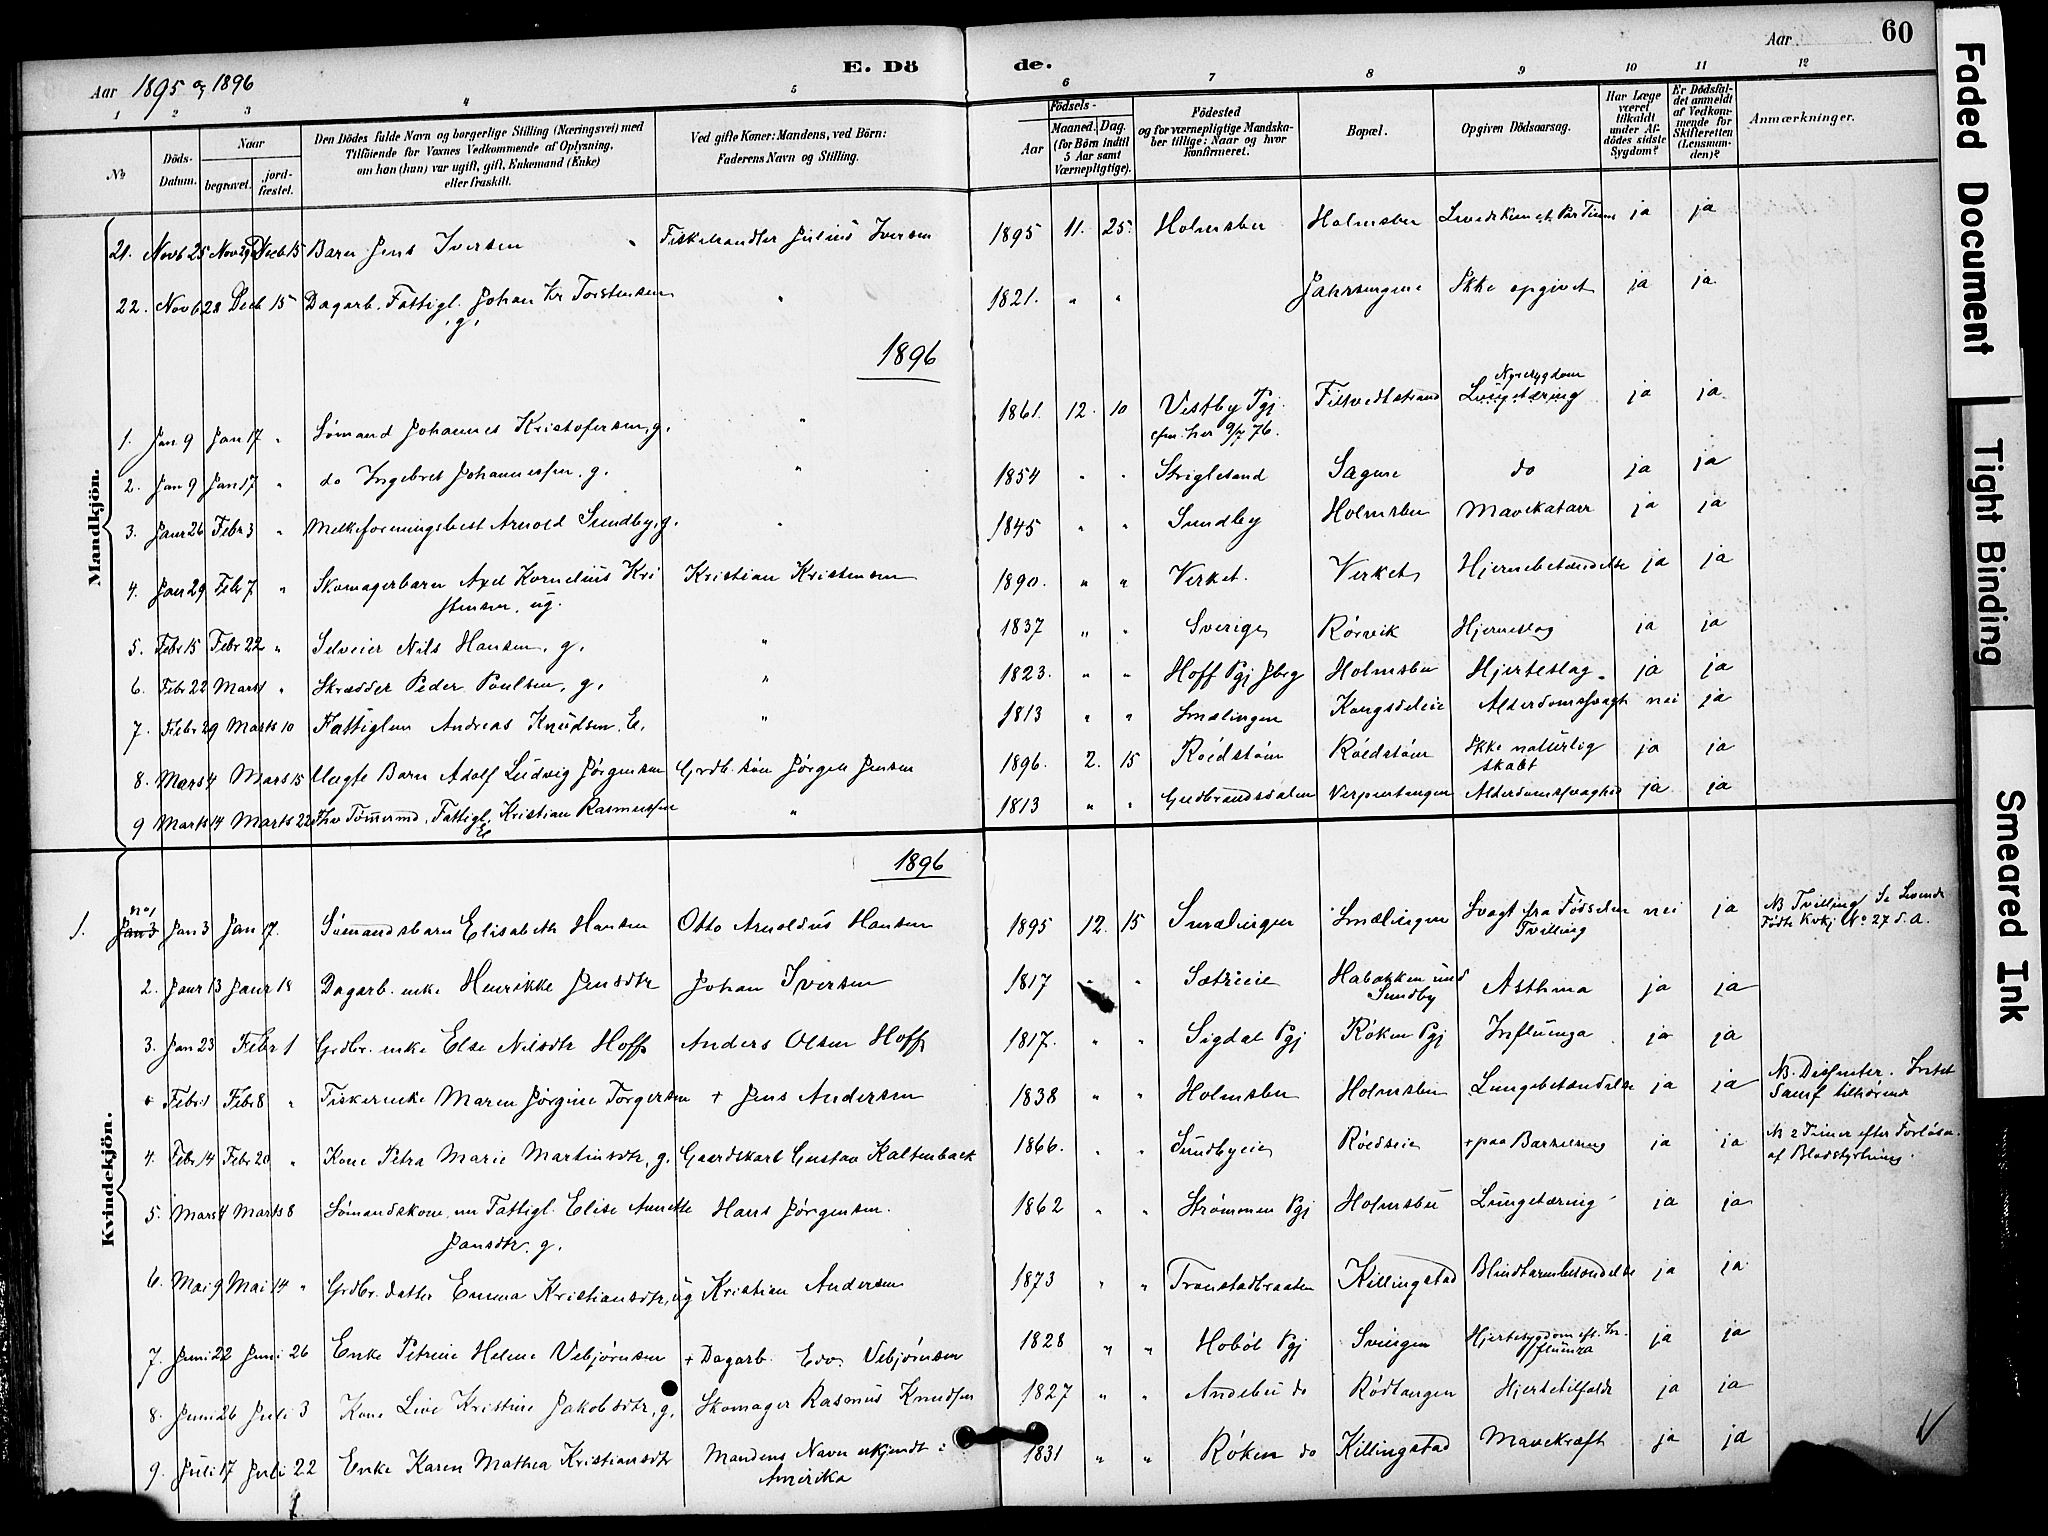 Aar 1895 og 1896
E. Dö
de.
Aar
60
1 2 3 4 5 6 7 8 9 10 11 12
No
Döds-
Datum.
Naar
begravet.
jord-
fæstet.
Den Dödes fulde Navn og borgerlige Stilling (Næringsvei) med
Tilföiende for Voxnes Vedkommende af Oplysning,
om han (hun) var ugift, gift, Enkemand (Enke)
eller fraskilt.
Ved gifte Koner: Mandens, ved Börn:
Faderens Navn og Stilling.
Födsels-
Aar
Maaned. Dag.
(for Börn indtil
5 Aar samt
Værnepligtige).
Födested
og for værnepligtige Mandska-
ber tillige: Naar og hvor
konfirmeret.
Bopæl.
Opgiven Dödsaarsag.
Har Læge
været
tilkaldt
under Af-
dödes sidste
Sygdom?
Er Dödsfal-
det anmeldt
af Vedkom-
mende for
Skifteretten
(Lensman-
den)?
Anmærkninger.
Mandkjön.
21. Novb 25 Nov 29 Decb 15 Barn Jens Iversen Fiskehandler Julius Iversen 1895 11. 25. Holmsbu Holmsbu ja ja
22. Novb 28 Decb 15 Dagarb. Fattigl. Johan Kr Torstensen " 1821. " " Ikke opgivet ja ja
g.
1896
Nyresygdom
1. Jan 9 Jan 17 " Sømand Johannes Kristofersen, g. " 1861. 12. 10 Vestby Pgj. Filtvedtstrand Lungetæring ja ja
cfm. her 9/7 76.
2. Jan 9 Jan 17 " do Ingebret Johannessen. g. " 1854 " " Sagene do ja ja
3. Janr 26 Febr 3 " Arnold Sundby, g. " 1845 " " Sundby Holmsbu Mavekatarr ja ja
4. Janr 29 Feb 7 " Skomagerbarn Axel Kornelius Kri Kristian Kristensen 1890. " " Verket. Verket Hjernebetændelse ja ja
stensen, ug.
5. Febr 15 Febr 22 " Selveier Nils Hansen, g. " 1837 " " Sverige Rørvik Hjerneslag ja ja
6. Febr 22 Mars 1 " Skrædder Peder Poulsen, g. " 1823. " " Hoff Pgj Jbrg Holmsbu Hjerteslag. ja ja
7. Febr 29 Marts 10 Fattiglem Andreas Knudsen. E. " 1813 " " Smalingen Kongsdeleie Alderdomssvagh nei ja
8. Mars 4 Mars 15 Uægte Barn Adolf Ludvig Jørgensen Grdb. søn Jørgen Jensen 1896. 2. 15 Røedstøm Røedstøm Ikke naturlig ja ja
skabt
9 Marts 14 Marts 22 Tømermd, Fattigl. Kristian Rasmussen " 1813 " " Gudbrandsdalen Verpentangen Alderdomssvaghed ja ja
E
Kvindekjön.
1896
no 1
1. Jan 3 Jan 3 Jan 17. Sømandsbarn Elisabeth Hansen Otto Arnoldus Hansen 1895 12. 15 Smalingen Smælingen Svagt fra Fødselen nei ja NB Tvilling Se Levende
Tvilling Fødte Kvkj No 27 d. A.
2. Janr 13 Janr 18 Dagarb. enke Henrikke Jensdtr Johan Iversen 1817 " " Sætreeie Habakken und Asthma ja ja
Sundby
3. Jan 23 Febr 1 Grdbr. enke Else Nilsdtr Hoff Anders Olsen Hoff 1817. " " Sigdal Pgj Røken Pgj Influenza ja ja
+ Febr. 1 Febr 8 " Fiskerenke Maren Jørgine Torgersen + Jens Andersen 1838 " " Holmsbu Holmsbu Lungebetændelse ja ja NB. Dissenter. Intet
Samf tilhørende
4. Febr 14 Febr 20 " Kone Petra Marie Martinsdtr, g. Gaardskarl Gustav Kaltenback 1866. " " Sundbyeie Røedseie + paa Barselseng ja ja NB 2 Timer efter Forløsn.
af Blodstyrtning.
5. Mars 4 Marts 8 Sømandskone, nu Fattigl. Elise Annette Hans Jørgensen. 1862 " " Strømmen Pgj Holmsbu Lungetæring ja ja
Jansdtr. g.
6. Mai 9 Mai 14 " Grdbr. datter Emma Kristiansdtr, ug Kristian Andersen 1873 " " Tronstadbraaten Killingstad Blindtarmbetændelse ja ja
7. Juni 22 Juni 26 Enke Petrine Helene Vebjørnsen + Dagarb. Edv. Vebjørnsen 1828 " " Hobøl Pgj Svingen Hjertesygdom eft. In- ja ja
fluenza
8. Juni 26 Juli 3 Kone Live Kristine Jakobsdtr, g. Skomager Rasmus Knudsen 1827 " " Andebu do Rødtangen Hjertetilfælde ja ja
9. Juli 17 Juli 22 Enke Karen Mathea Kristiansdtr Mandens Navn ukjendt i 1831 " " Røken do Killingstad Mavekræft ja ja
Amerika
Faded Document
Tight Binding
Smeared Ink